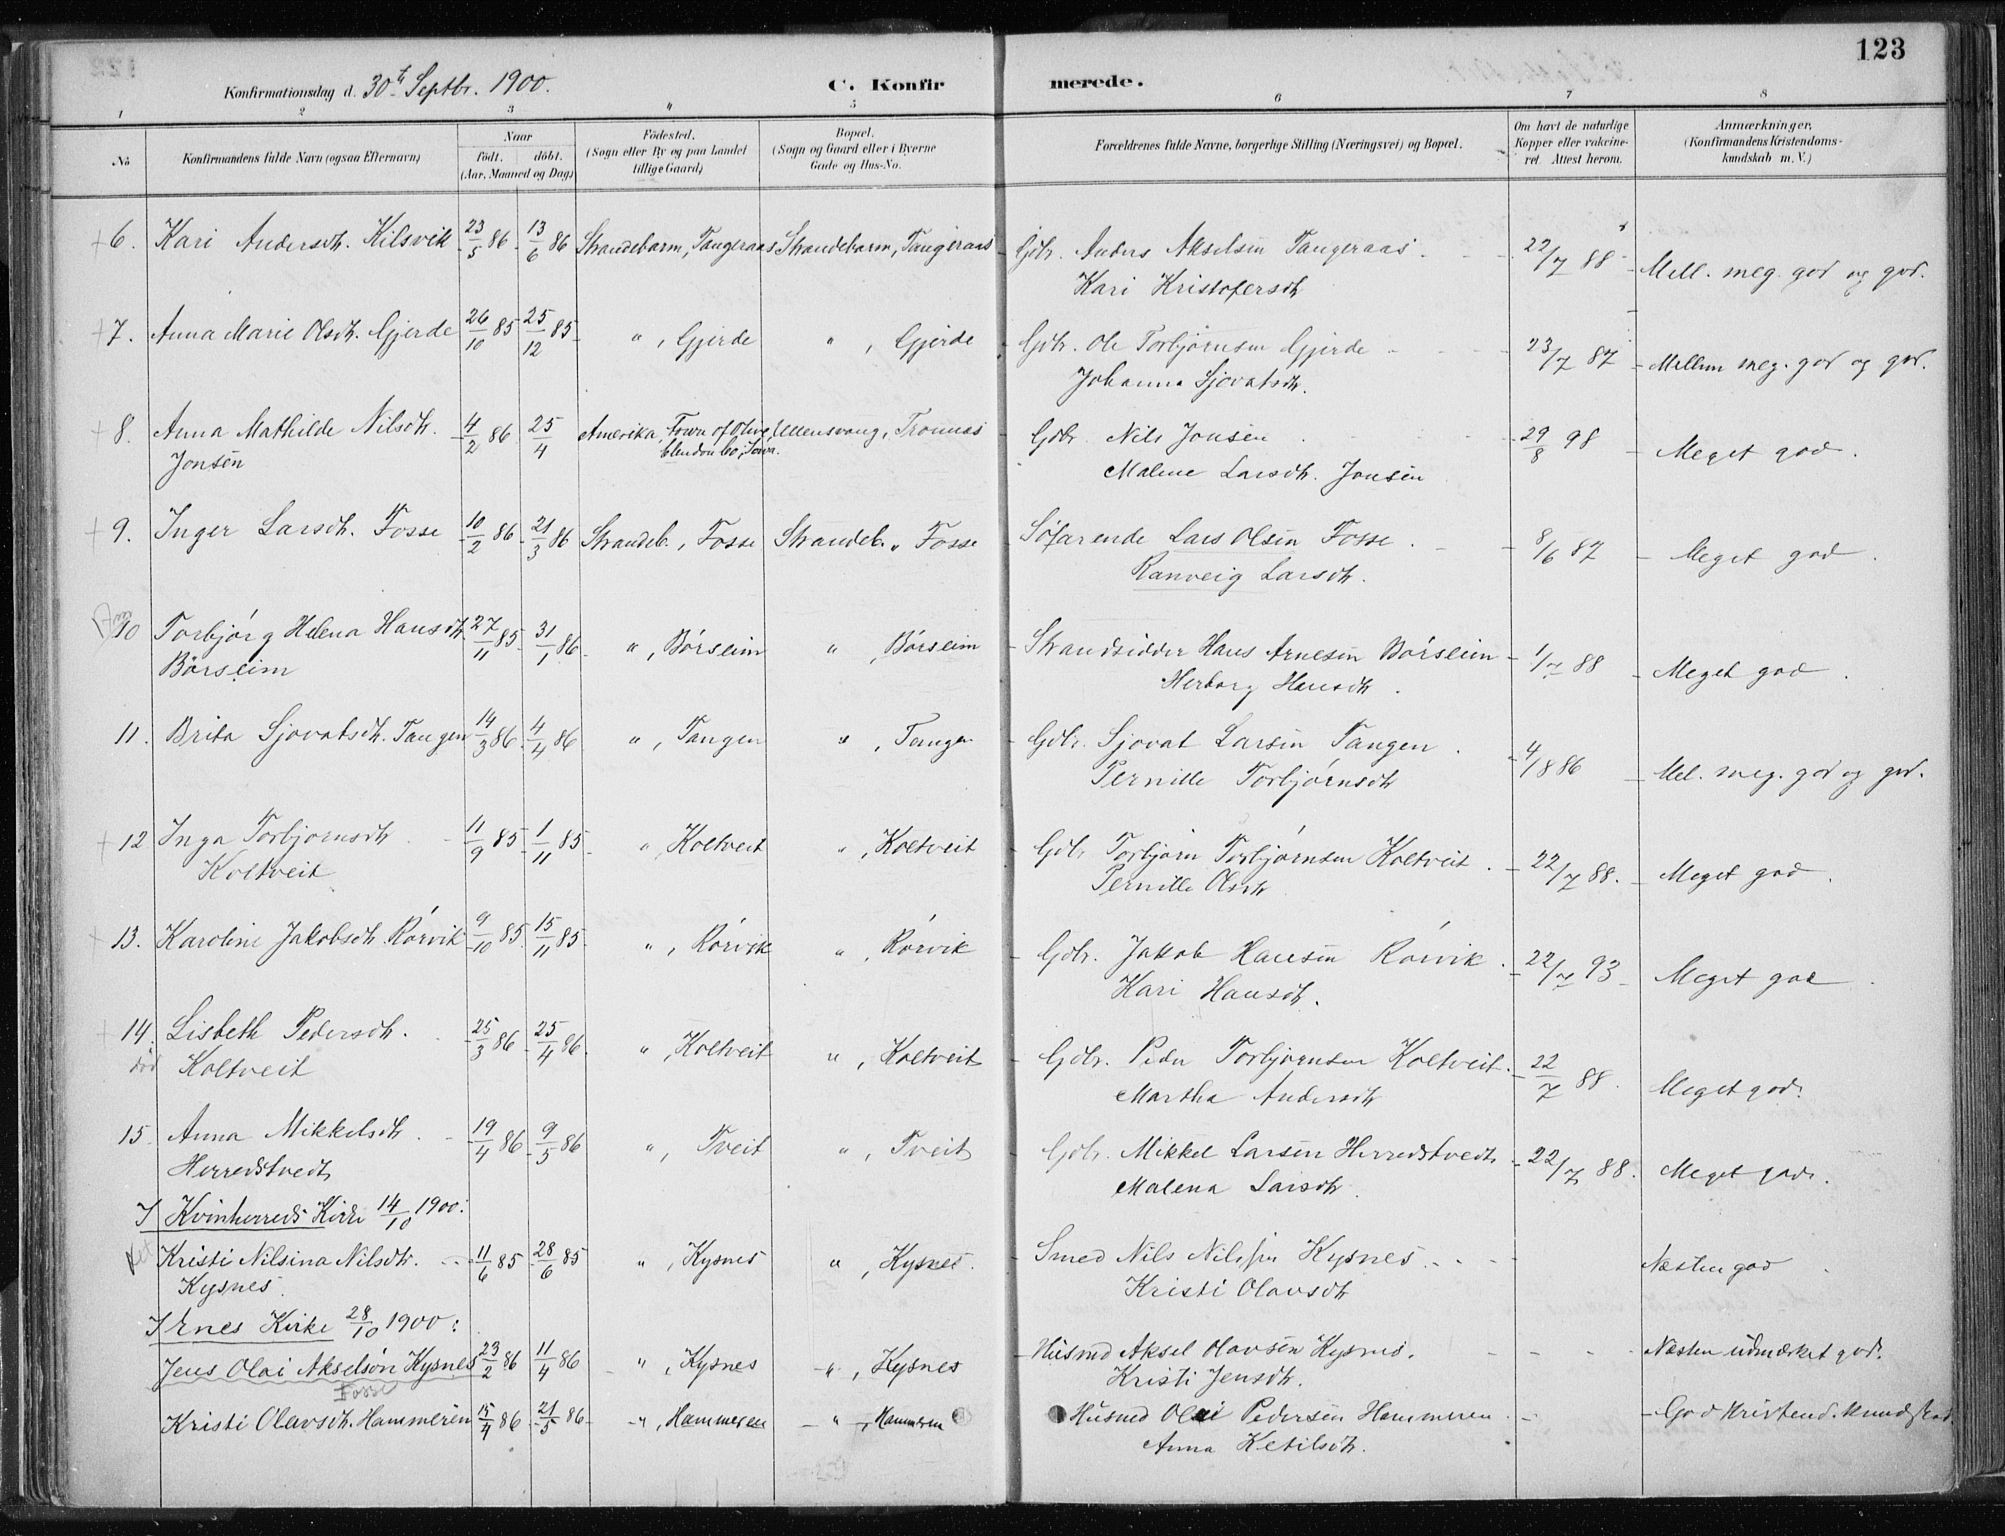 123
Konfirmationsdag d. 30te Septbr. 1900. C. Konfirmerede.
1 2 3 " 5 6 7 8
No Konfirmandens fulde Navn (ogsaa Efternavn) Naar født. døbt. (Aar, Maaned og Dag) Fødested. (Sogn eller By og paa Landet tillige Gaard) Bopæl. (Sogn og Gaard eller i Byerne Gade og Hus-No. Forældrenes fulde Navne, borgerlige Stilling (Næringsvei) og Bopæl. Om havt de naturlige Kopper eller vakcineret. Attest herom. Anmærkninger, (Konfirmandens Kristendomskundskab m. V.)
+ 6. Kari Andersdtr. Kilsvik 23/5 86 13/6 86 Strandebarm, Tangeraas Strandebarm, Tangeraas Gbr. Anders Akselsen Tangeraas 22/7 88 Mell. meg. god og god.
Kari Kristofersdtr
+ 7. Anna Marie Olsdtr. Gjerde 26/10 85 25/12 85 ", Gjerde ", Gjerde Gbr. Ole Torbjørnsen Gjerde 23/7 87 Mellem meg. god og god.
Johanna Sjovatsdtr.
+ 8. Anna Mathilde Nilsdtr. 4/2 86 25/4 Amerika, Town of Olive, Ullensvang, Gbr. Nils Jonsen 29/8 98 Meget god.
Jonsen Co, Iowa. Malene Larsdtr. Jonsen
+ 9. Inger Larsdtr. Fosse 10/2 86 21/3 86 Strandeb., Fosse Strandeb. " Fosse Søfarende Lars Olsen Fosse 8/6 87 Meget god.
Ranveig Larsdtr.
10 Torbjørg Helena Hansdtr. 27/11 85 31/1 86 ", Børseim ", Børseim Strandsidder Hans Arnesen Børseim 1/7 88 Meget god.
Børseim Herborg Hansdtr.
11. Brita Sjovatsdtr. Tangen 14/3 86 4/4 86 ", Tangen ", Tangen Gbr. Sjovat Larsen Tangen 4/8 86 Mel. meg. god og god.
Pernille Torbjørnsdtr
+ 12 Inga Torbjørnsdtr 11/9 85 1/11 85 ", Koltveit ", Koltveit Gbr. Torbjørn Torbjørnsen Koltveit 22/7 88. Meget god.
Koltveit Pernille Olsdtr
+ 13. Karoline Jakobsdtr. Rørvik 9/10 85 15/11 85 ", Rørvik ", Rørvik Gbr. Jakob Hansen Rørvik 22/7 93 Meget god.
Kari Hansdtr.
+ 14. Lisbeth Pedersdtr. 25/3 86 25/4 86 ", Koltveit ", Koltveit Gbr. Peder Torbjørnsen Koltveit 22/7 88. Meget god.
død Koltveit Martha Andersdtr
15. Anna Mikkelsdtr. 19/4 86 9/5 86 ", Tveit ", Tveit Gbr. Mikkel Larsen Herredstvedt 22/7 88. Meget god.
Herredstvedt Malena Larsdtr.
I Kvinherreds Kirke 14/10 1900:
Kristi Nilsina Nilsdtr. 11/6 85 28/6 85 ", Kysnes ", Kysnes. Smed Nils Nilssen Kysnes Næsten god
Kysnes. Kristi Olavsdtr
I Enes Kirke 28/10 1900:
Jens Olai Akselsøn Kysnes 23/2 86 11/4 86 ", Kysnes ", Kysnes Husmd Aksel Olavsen Kysnes. Næsten udmærket god.
Fosse Kristi Jensdtr.
Kristi Olavsdtr. Hammeren 15/4 86 21/5 86 ", Hammeren ", Hammeren Husmd Olai Pedersen Hammeren God Kristend. kundskab
Anna Ketilsdtr.